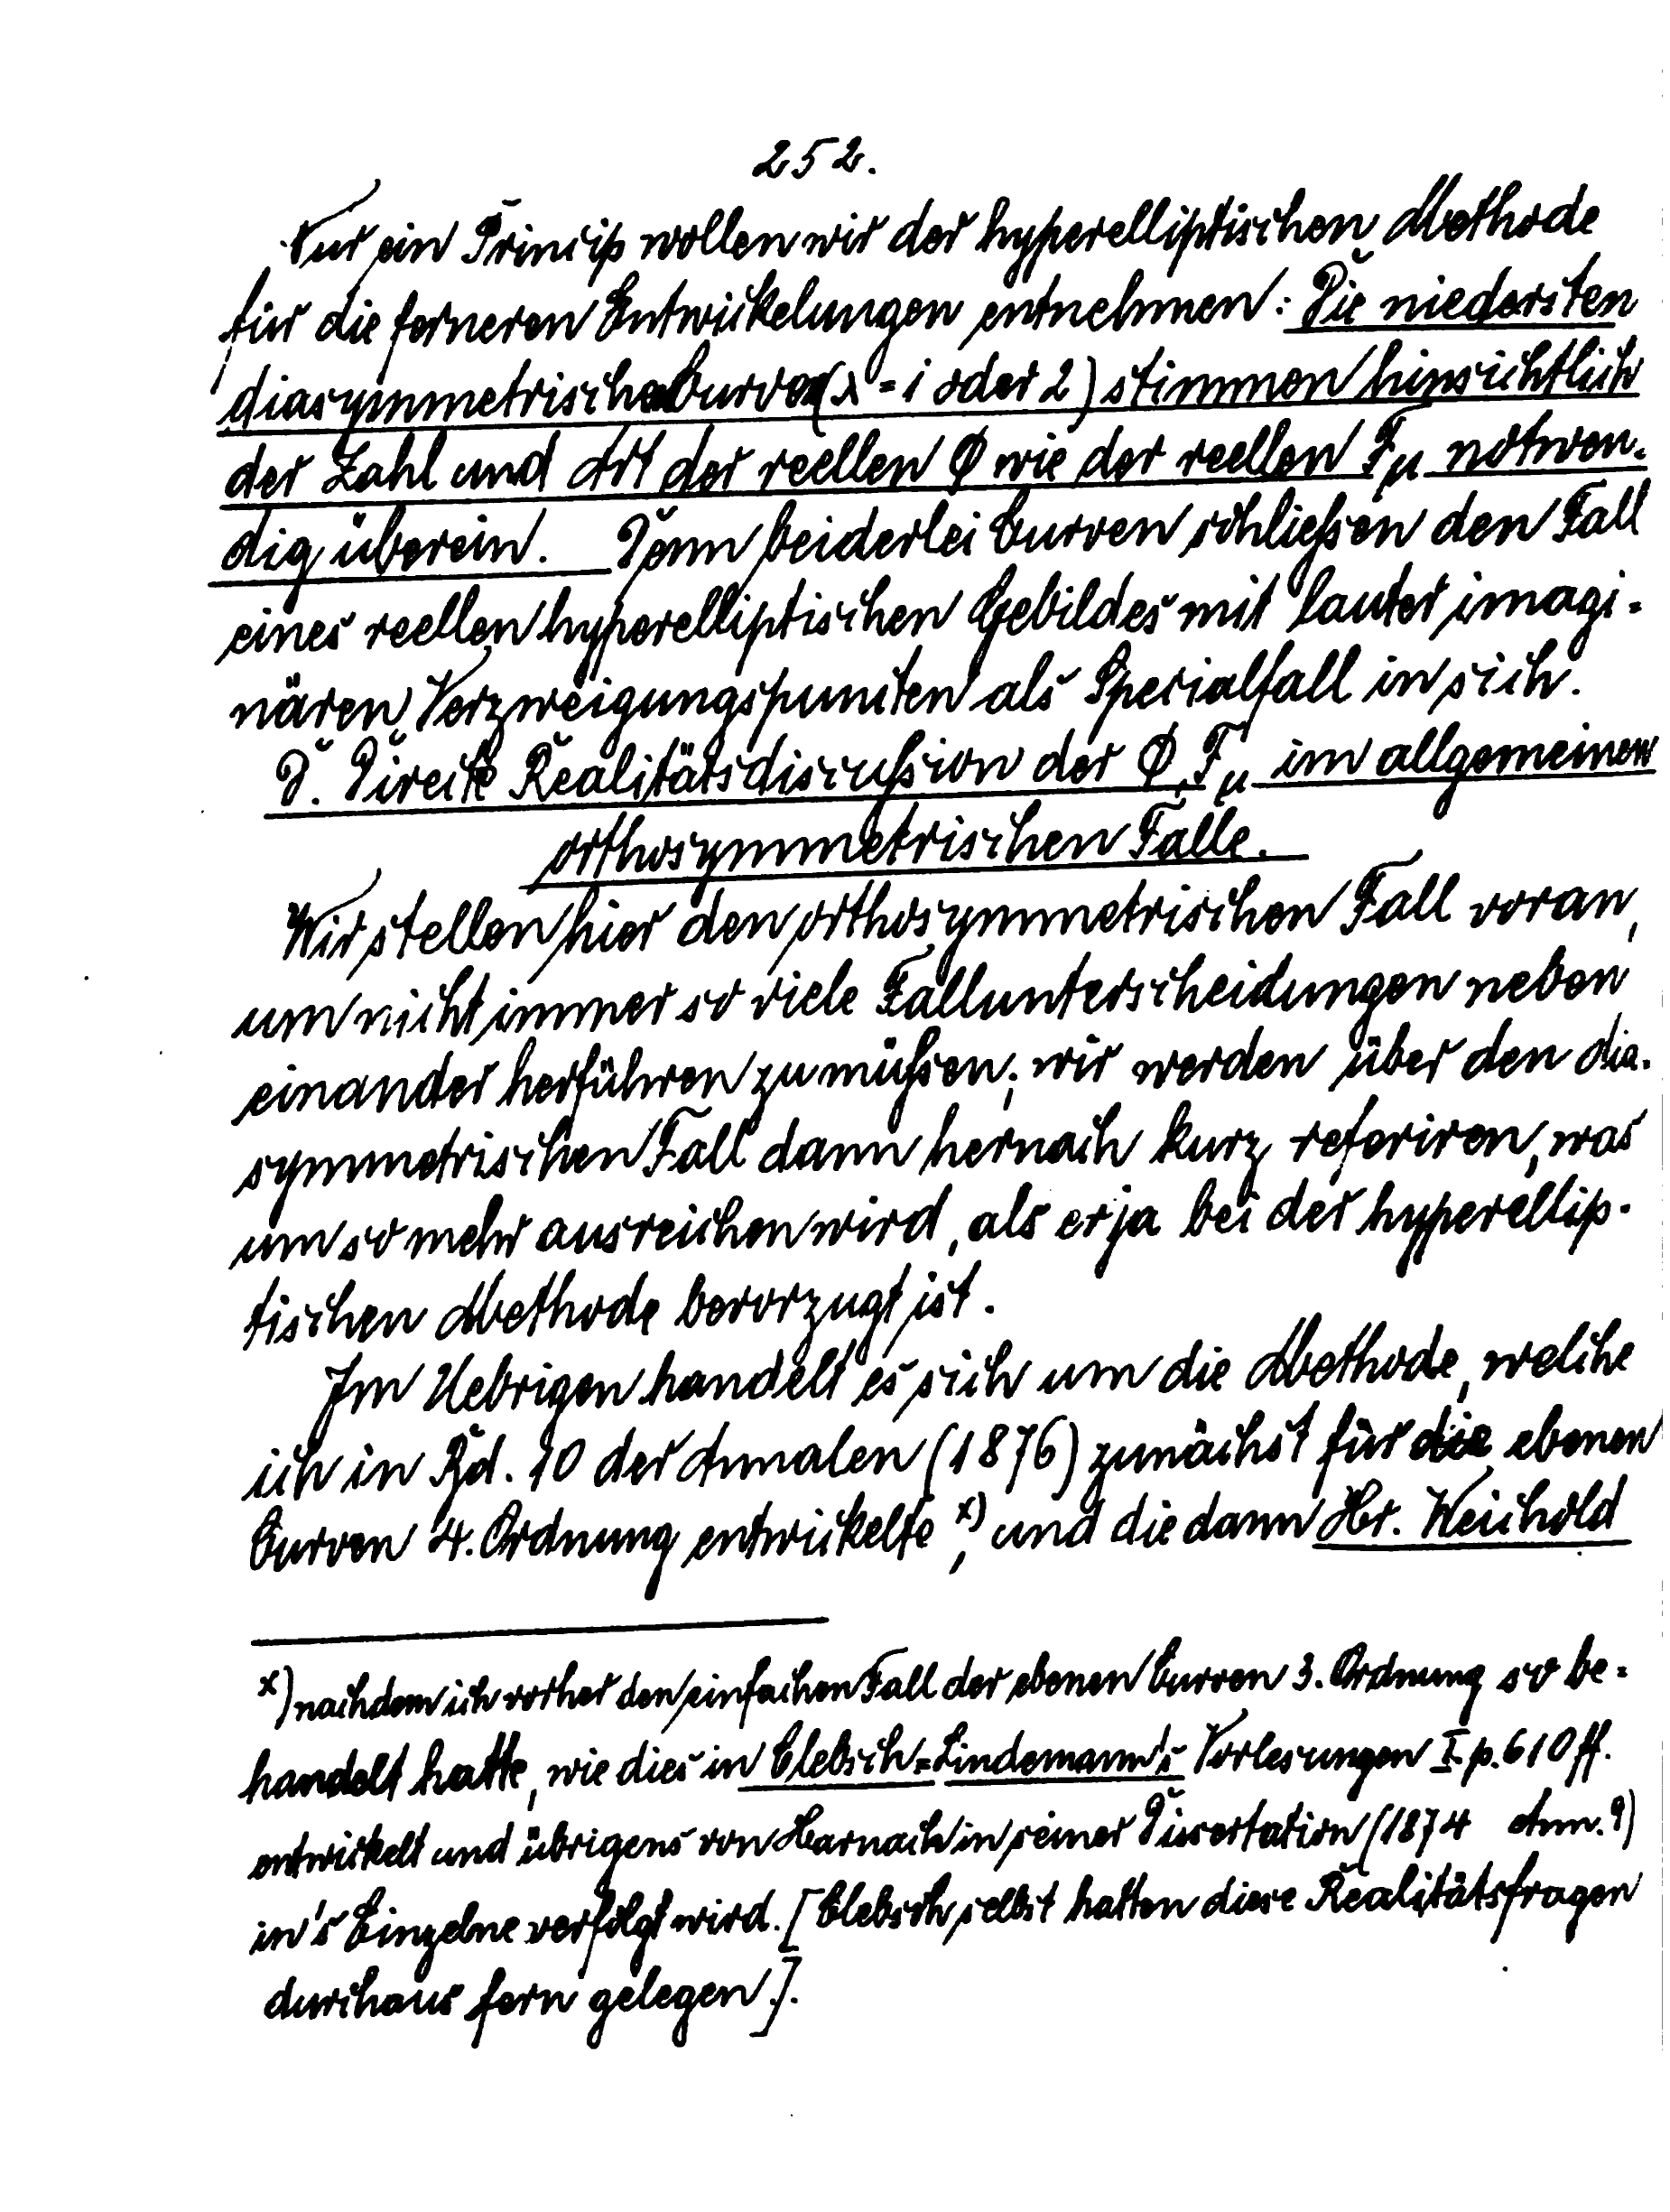 252.
Nur ein Princip wollen wir der hyperelliptischen Methode
für die ferneren Entwickelungen entnehmen: Die niedersten
diasymmetrischen Curven (λ = 1 oder 2) stimmen hinsichtlich
der Zahl und Art der reellen Φ wie der reellen Fμ notwen-
dig überein. Denn beiderlei Curven schließen den Fall
eines reellen hyperelliptischen Gebildes mit lauter imagi-
nären Verzweigungspuncten als Specialfall in sich.
D. Directe Realitätsdiscußion der Φ, Fμ im allgemeinen
orthosymmetrischen Falle.
Wir stellen hier den orthosymmetrischen Fall voran,
um nicht immer so viele Fallunterscheidungen neben
einander herführen zu müßen; wir werden über den dia-
symmetrischen Fall dann hernach kurz referiren, was
um so mehr ausreichen wird, als er ja bei der hyperellip-
tischen Methode bevorzugt ist.
Im Uebrigen handelt es sich um die Methode, welche
ich in Bd. 10 der Annalen (1876) zunächst für die ebenen
Curven 4. Ordnung entwickelte x), und die dann Hr. Weichold
x) nachdem ich vorher den einfachen Fall der ebenen Curven 3. Ordnung so be-
handelt hatte, wie dies in Clebsch-Lindemann's Vorlesungen I p. 610 ff.
entwickelt und übrigens von Harnack in seiner Dissertation (1874 Ann. 9)
in's Einzelne verfolgt wird. [Clebsch selbst hatten diese Realitätsfragen
durchaus fern gelegen].